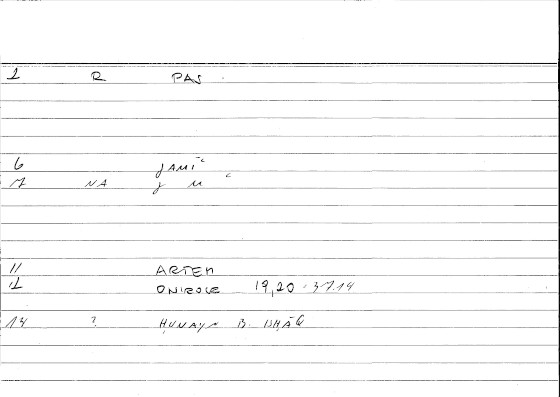 1 R PAS
6 JAMIʿ
7 NA J M ʿ
11 ARTEM
12 ONIROCR 19,20 - 37.14
14 ? ḤUNAYN B. ISḤĀQ